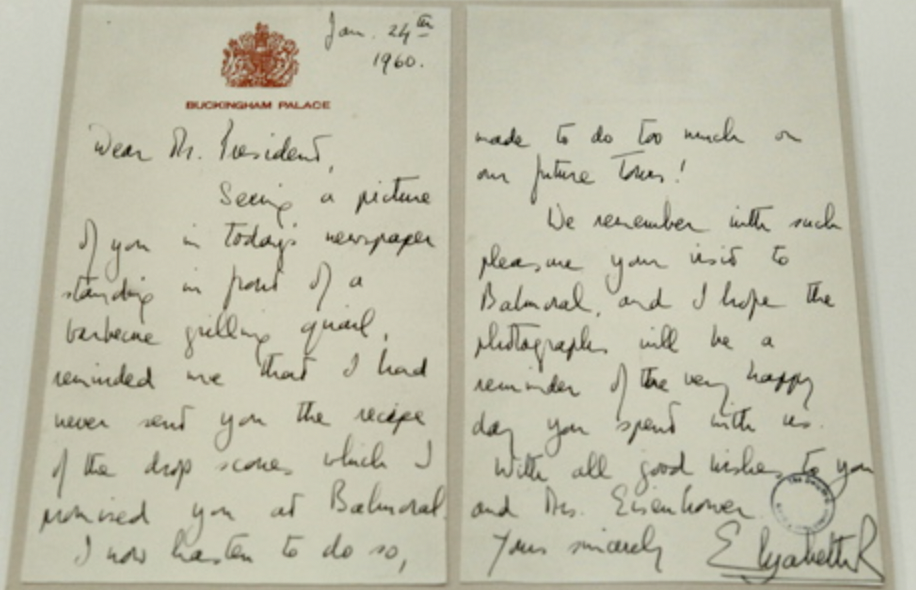 Jan. 24th
1960.
BUCKINGHAM PALACE
Dear Mr. President,
Seeing a picture
of you in today's newspaper
standing in front of a
barbecue grilling quail,
reminded me that I had
never sent you the recipe
of the drop scones which I
promised you at Balmoral.
I now hasten to do so,
made to do too much on
our future Tours!
We remember with such
pleasure your visit to
Balmoral, and I hope the
photographs will be a
reminder of the very happy
day you spent with us.
With all good wishes to you
and Mrs. Eisenhower.
Yours sincerely
Elizabeth R